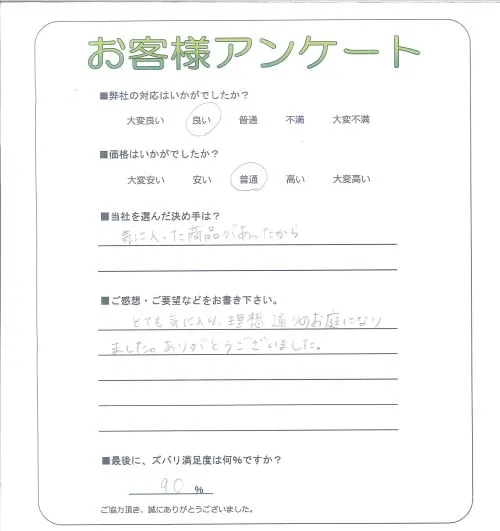 お客様アンケート
■弊社の対応はいかがでしたか？
大変良い　良い　普通　不満　大変不満
■価格はいかがでしたか？
大変安い　安い　普通　高い　大変高い
■当社を選んだ決め手は？
気に入った商品があったから
■ご感想・ご要望などをお書き下さい。
とても気に入り、理想通りのお庭になり
ました。ありがとうございました。
■最後に、ズバリ満足度は何%ですか？
90 %
ご協力頂き、誠にありがとうございました。